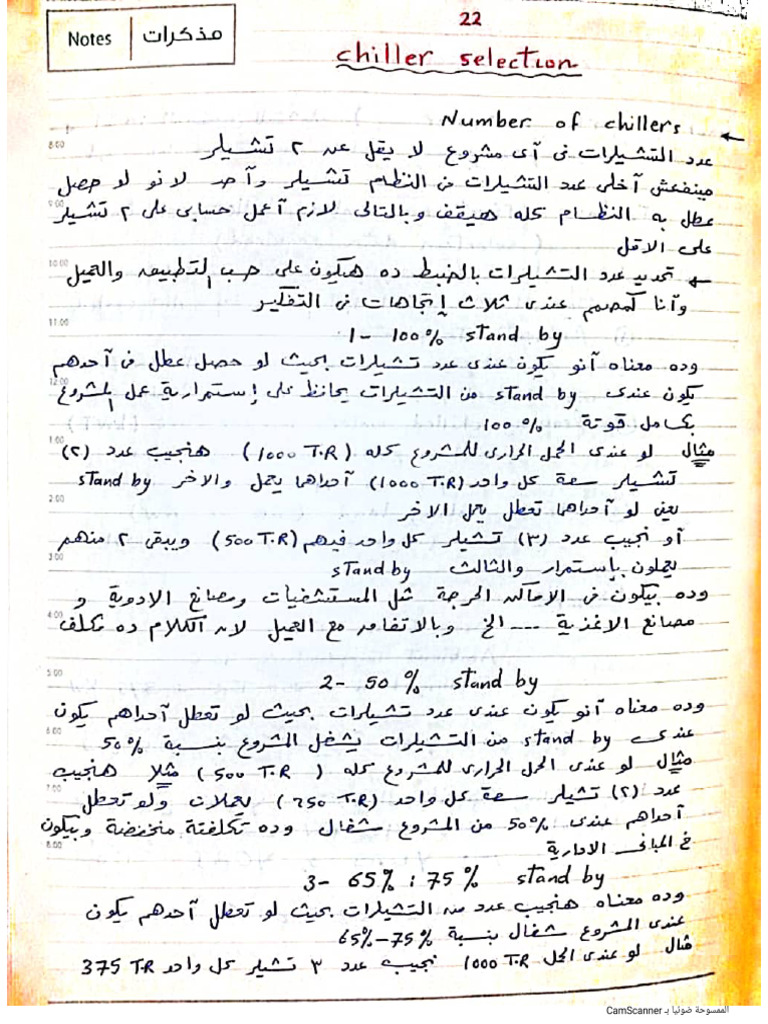 22
مذكرات Notes
chiller selection
Number of chillers
8:00
عدد التشيلرات فى آى مشروع لا يقل عن ٢ تشيلر
مينفعش آخلى عدد التشيلرات فى النظام تشيلر وآحد لانو لو حصل
9:00
عطل به النظام كله هيقف وبالتالى لازم آعمل حسابى على ٢ تشيلر
على الاقل
10:00
تحديد عدد التشيلرات بالضبط ده هيكون على حسب التطبيق والعميل
وآنا كمصمم عندى ثلاث إتجاهات فى التفكير
11:00
1- 100% stand by
وده معناه آنو يكون عندى عدد تشيلرات بحيث لو حصل عطل فى آحدهم
12:00
يكون عندى stand by من التشيلرات يحافظ على إستمرارية عمل المشروع
بكامل قوتة 100%
1:00
مثال لو عندى الحمل الحرارى للمشروع كله (1000 T.R) هنجيب عدد (٢)
تشيلر سعة كل واحد (1000 T.R) آحداهما يعمل والاخر stand by
2:00
يعنى لو آحداهما تعطل يعمل الاخر
آو نجيب عدد (٣) تشيلر كل واحد فيهم (500 T.R) ويبقى ٢ منهم
3:00
يعملون بإستمرار والثالث stand by
وده بيكون فى الاماكن الحرجة مثل المستشفيات ومصانع الادوية و
4:00
مصانع الاغذية --- الخ وبالاتفاق مع العميل لان الكلام ده مكلف
5:00
2- 50% stand by
وده معناه آنو يكون عندى عدد تشيلرات بحيث لو تعطل آحداهم يكون
6:00
عندى stand by من التشيلرات يشغل المشروع بنسبة 50%
مثال لو عندى الحمل الحرارى للمشروع كله (500 T.R) مثلا هنجيب
7:00
عدد (٢) تشيلر سعة كل واحد (250 T.R) يعملات ولو تعطل
آحداهم عندى 50% من المشروع شغال وده تكلفتة منخفضة وبيكون
8:00
فى المبانى الادارية
3- 65% : 75% stand by
وده معناه هنجيب عدد من التشيلرات بحيث لو تعطل آحدهم يكون
عندى المشروع شغال بنسبة 65%-75%
مثال لو عندى الحمل 1000 T.R نجيب عدد ٣ تشيلر كل واحد 375 T.R
الممسوحة ضوئيا بـ CamScanner